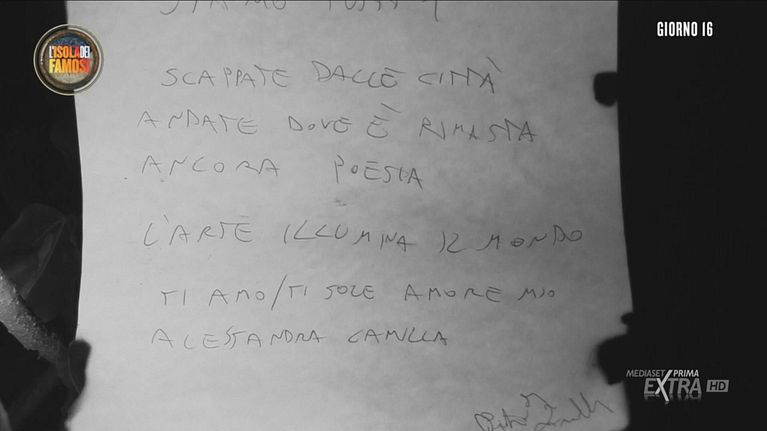 L'ISOLA DEI
FAMOSI
GIORNO 16
SCAPPATE DALLE CITTÀ
ANDATE DOVE È RIMASTA
ANCORA POESIA
L'ARTE ILLUMINA IL MONDO
TI AMO/TI SOLE AMORE MIO
ALESSANDRA CAMILLA
MEDIASET PRIMA
EXTRA HD